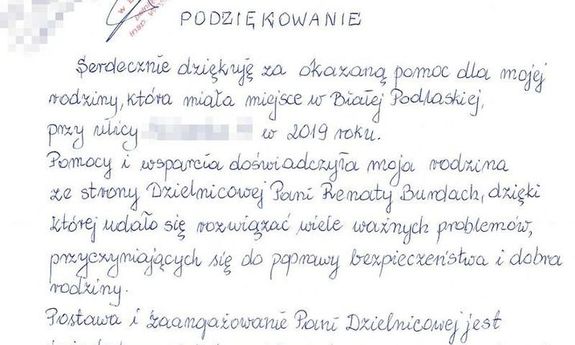 PODZIĘKOWANIE
Serdecznie dziękuję za okazaną pomoc dla mojej
rodziny, która miała miejsce w Białej Podlaskiej,
przy ulicy w 2019 roku.
Pomocy i wsparcia doświadczyła moja rodzina
ze strony Dzielnicowej Pani Renaty Burdach, dzięki
której udało się rozwiązać wiele ważnych problemów,
przyczyniających się do poprawy bezpieczeństwa i dobra
rodziny.
Postawa i zaangażowanie Pani Dzielnicowej jest